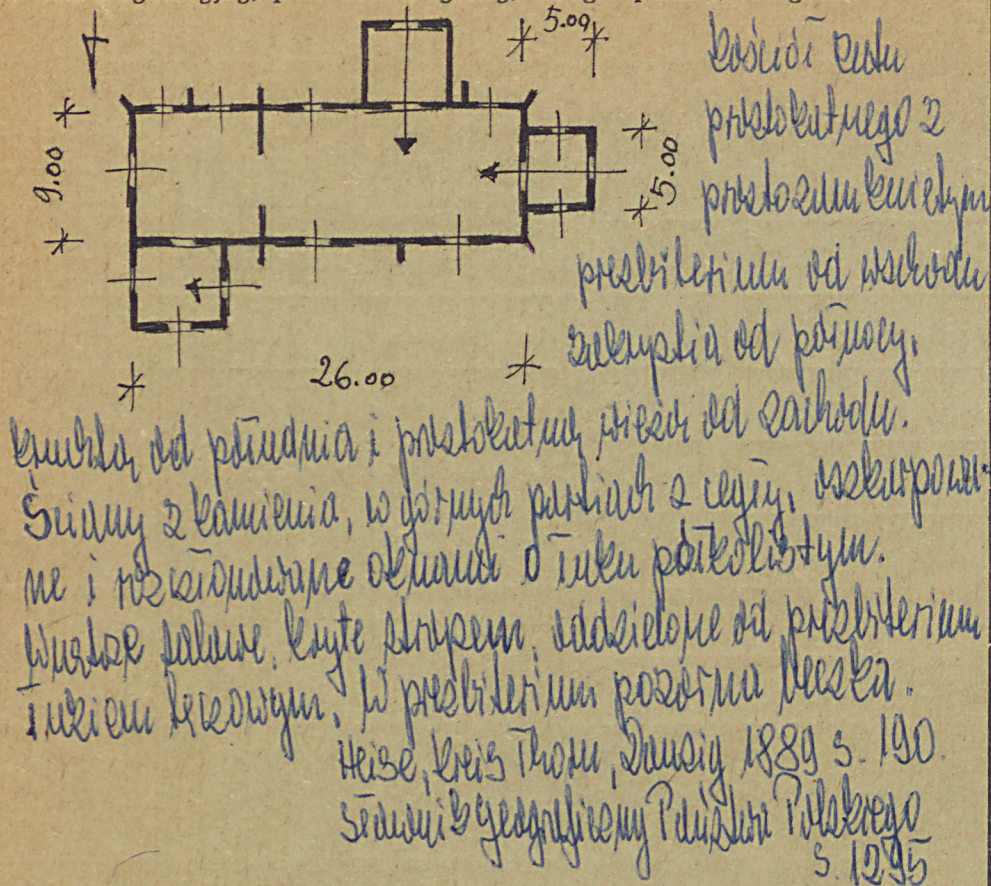 5.00
9.00
5.00
26.00
Kościół rzutu
prostokątnego z
prostozamkniętym
prezbiterium od wschodu
zakrystia od północy,
kruchtą od południa i prostokątną wieżą od zachodu.
Ściany z kamienia, w górnych partiach z cegły, oszkarpowa-
ne i rozczłonkowane oknami o łuku półkolistym.
Wnętrze salowe, kryte stropem, oddzielone od prezbiterium
łukiem tęczowym. W prezbiterium pozorna beczka.
Heise, Kreis Thorn, Danzig 1889 s. 190.
Słownik Geograficzny Państwa Polskiego
s. 1295